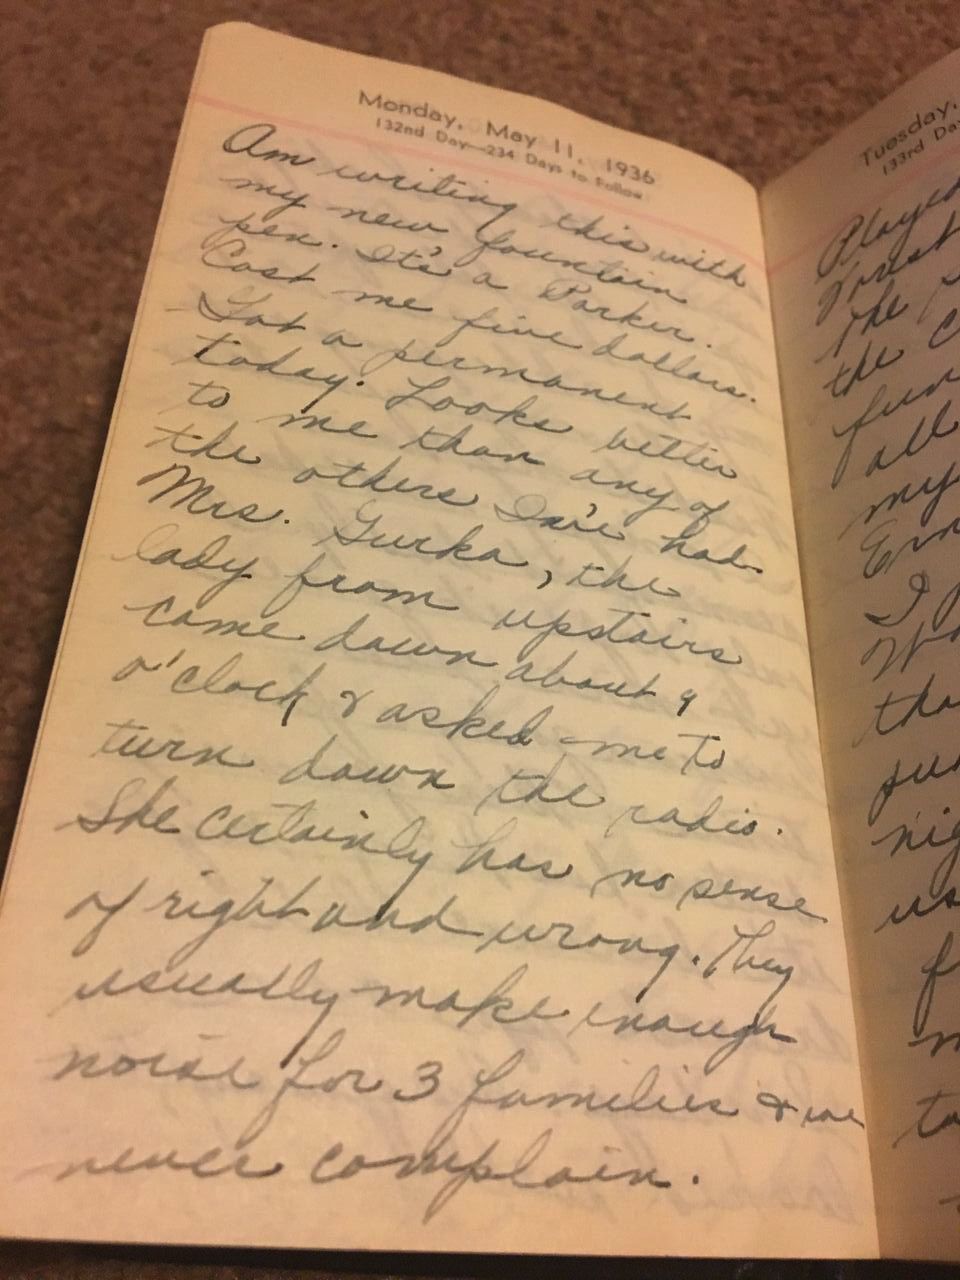 Monday, May 11, 1936
132nd Day—234 Days to Follow
Am writing this with
my new fountain
pen. It's a Parker.
Cost me five dollars.
Got a permanent
today. Looks better
to me than any of
the others I've had.
Mrs. Gurka, the
lady from upstairs
came down about 9
o'clock & asked me to
turn down the radio.
She certainly has no sense
of right and wrong. They
usually make enough
noise for 3 families & we
never complain.
Tuesday,
133rd Da
Played
the
the C
fun
all
my
I
tha
nig
us